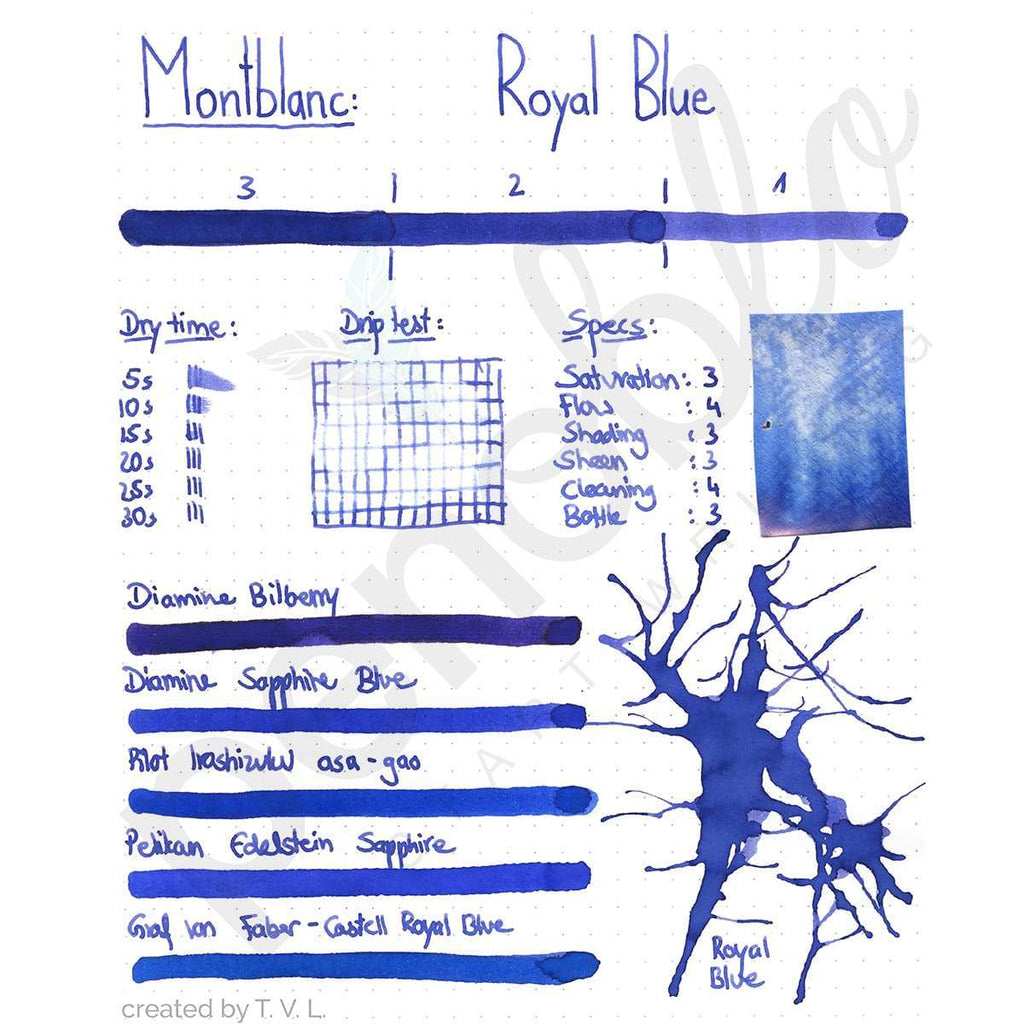 Montblanc: Royal Blue
3 | 2 | 1
Dry time:
5s
10s
15s
20s
25s
30s
Drip test:
Specs:
Saturation: 3
Flow : 4
Shading : 3
Sheen : 3
Cleaning : 4
Bottle : 3
Diamine Bilberry
Diamine Sapphire Blue
Pilot Iroshizuku asa-gao
Pelikan Edelstein Sapphire
Graf von Faber-Castell Royal Blue
Royal
Blue
penoblo
ART WRITING
created by T. V. L.